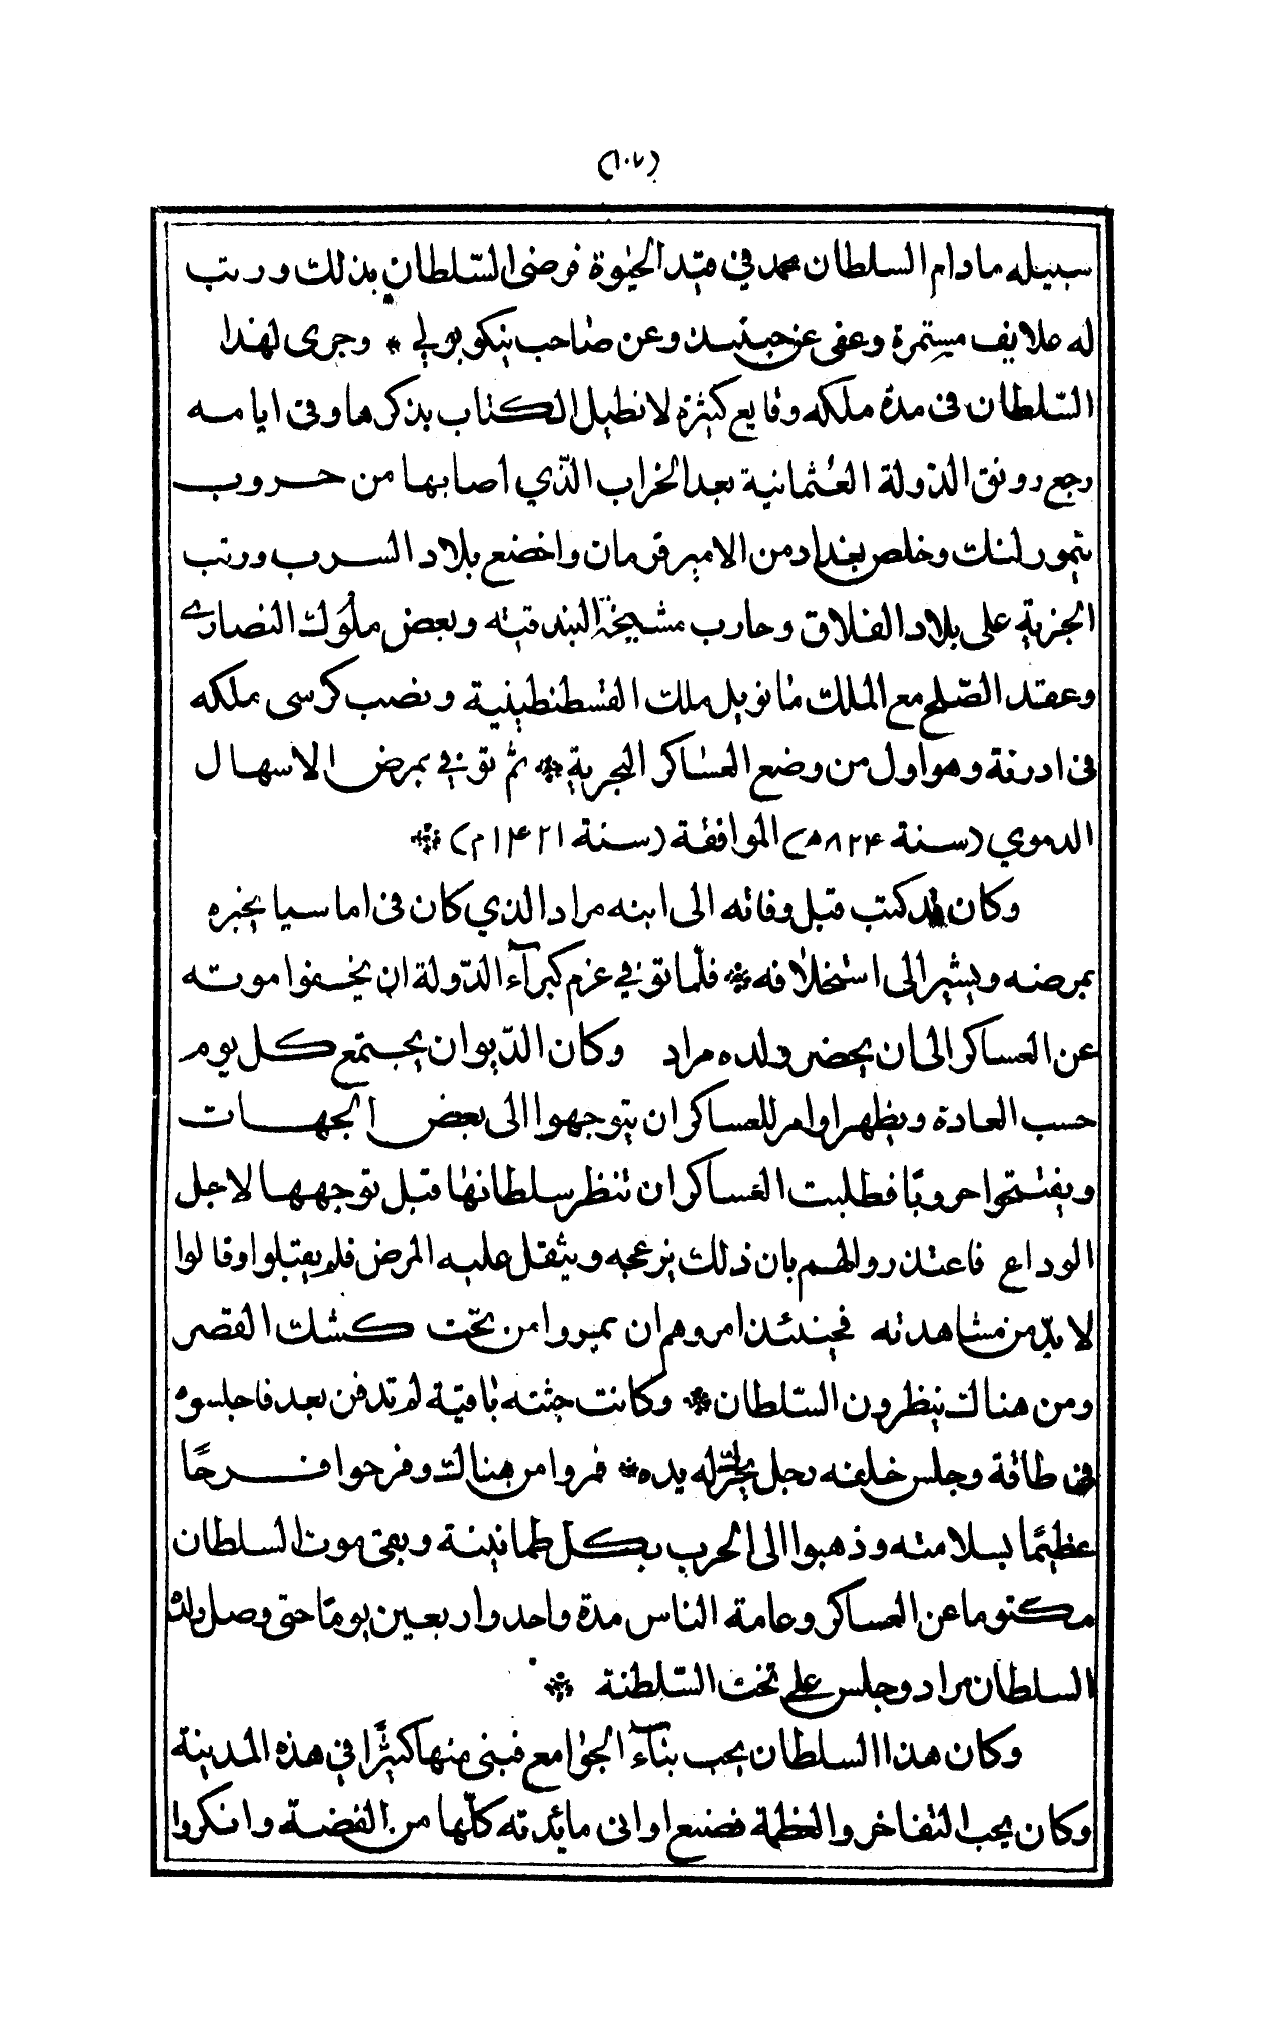 (١٠٧)
سبيله مادام السلطان محمد في قيد الحيٰوة فرضى السّلطان بذلك ورتب
له علايف مستمرة وعفى عن جنيد وعن صاحب نيكوبولي * وجرى لهذا
السّلطان في مدة ملكه وقايع كثيرة لا نطيل الكتاب بذكرها وفي ايامه
رجع رونق الدّولة العُثمانية بعد الخراب الّذي اصابها من حروب
تيمورلنك وخلص بغداد من الامير قرمان واخضع بلاد السرب ورتب
الجزية على بلاد الفلاق وحارب مشيخة البندقية وبعض ملوك النصارى
وعقد الصّلح مع الملك مانويل ملك القسطنطينية ونصب كرسي ملكه
في ادرنة وهو اول من وضع العساكر البحرية * ثمّ توفي بمرض الاسهال
الدموي (سنة ٨٢٤ هـ) الموافقة (سنة ١٤٢١ م) *
وكان قد كتب قبل وفاته الى ابنه مراد الذي كان في اماسيا يخبره
بمرضه ويشير الى استخلافه * فلمّا توفي عزم كبرآء الدّولة ان يخفوا موته
عن العساكر الى ان يحضر ولده مراد وكان الدّيوان يجتمع كل يوم
حسب العادة ويظهر اوامر للعساكر ان يتوجهوا الى بعض الجهات
ويفتتحوا حروبًا فطلبت العساكر ان تنظر سلطانها قبل توجهها لاجل
الوداع فاعتذروا لهم بان ذلك يزعجه ويثقل عليه المرض فلم يقبلوا وقالوا
لا بدّ من مشاهدته فحينئذ امروهم ان يمروا من تحت كشك القصر
ومن هناك ينظرون السّلطان * وكانت جثته باقية لم تدفن بعد فاجلسوه
في طاقة وجلس خلفه رجل يحرّك له يده * فمروا من هنالك وفرحوا فرحًا
عظيمًا بسلامته وذهبوا الى الحرب بكل طمانينة وبقي موت السلطان
مكتوما عن العساكر وعامة الناس مدة واحد واربعين يومًا حتى وصل ولده
السلطان مراد وجلس على تخت السّلطنة *
وكان هذا السلطان يحب بنآء الجوامع فبنى منها كثيرًا في هذه المدينة
وكان يحب التفاخر والعظمة فصنع اواني مائدته كلّها من الفضة وانكروا